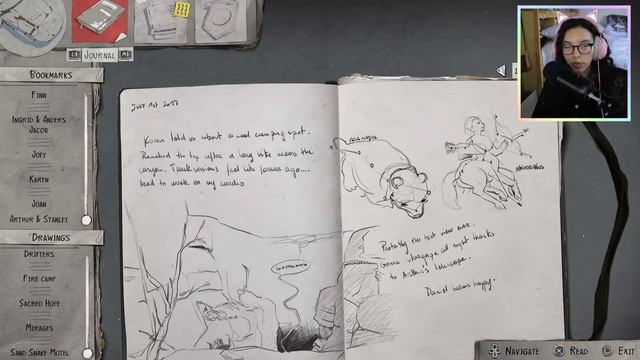 JOURNAL
BOOKMARKS
FINN
INGRID & ANDERS
JACOB
JOEY
KAREN
JOAN
ARTHUR & STANLEY
DRAWINGS
DRIFTERS
FIRE CAMP
SACRED HOPE
MIRAGES
SAND SNAKE MOTEL
JULY 1st 2017
Karen told us about a cool camping spot.
Reached the top after a long hike across the
canyon. Track sessions feel like forever ago...
Need to work on my cardio
Probably the best view ever.
Gonna stargaze all night thanks
to Arthur's telescope.
Daniel seems happy.
NAVIGATE
READ
EXIT